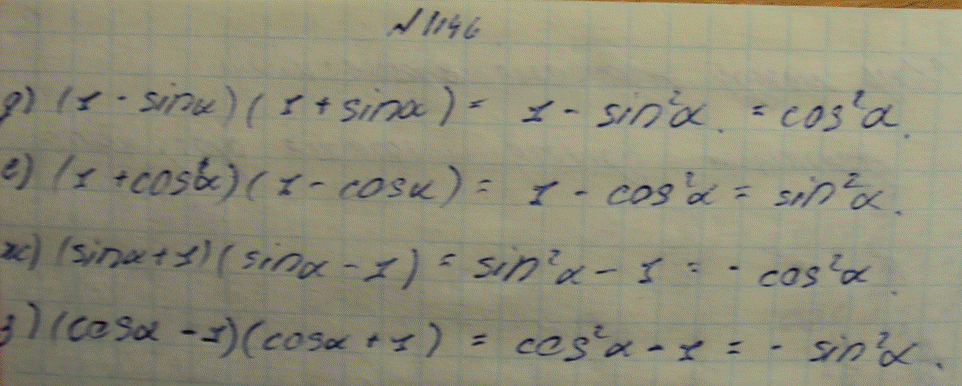 № 1146
д) (1 - sinα)(1 + sinα) = 1 - sin²α. = cos²α.
е) (1 + cos²α)(1 - cosα) = 1 - cos²α = sin²α.
ж) (sinα + 1)(sinα - 1) = sin²α - 1 = - cos²α.
з) (cosα - 1)(cosα + 1) = cos²α - 1 = - sin²α.